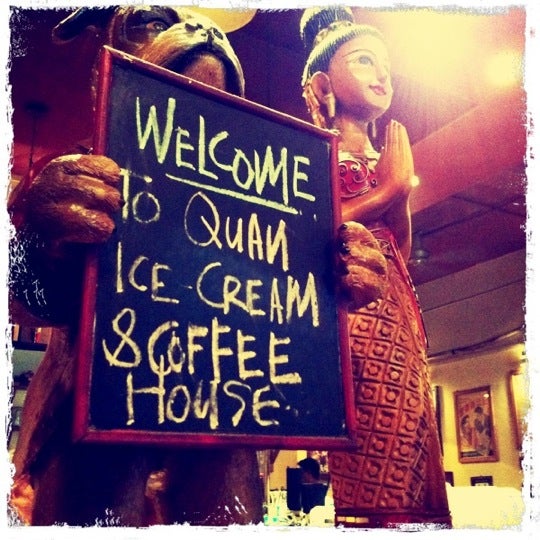 WELCOME
TO QUAN
ICE-CREAM
& COFFEE
HOUSE